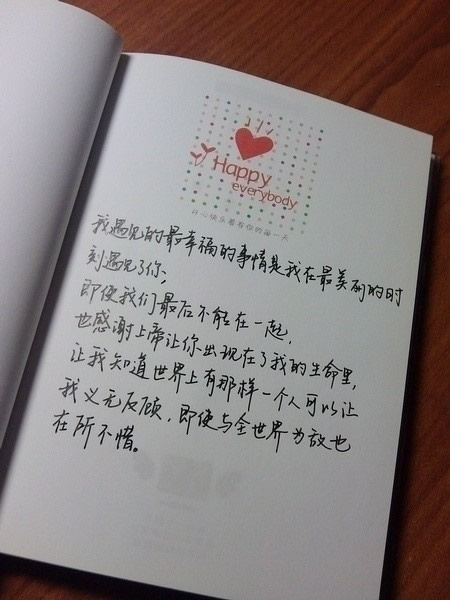 Happy
everybody
开心快乐着有你的每一天
我遇见的最幸福的事情是我在最美丽的时
刻遇见了你;
即使我们最后不能在一起,
也感谢上帝让你出现在了我的生命里,
让我知道世界上有那样一个人可以让
我义无反顾,即使与全世界为敌也
在所不惜。